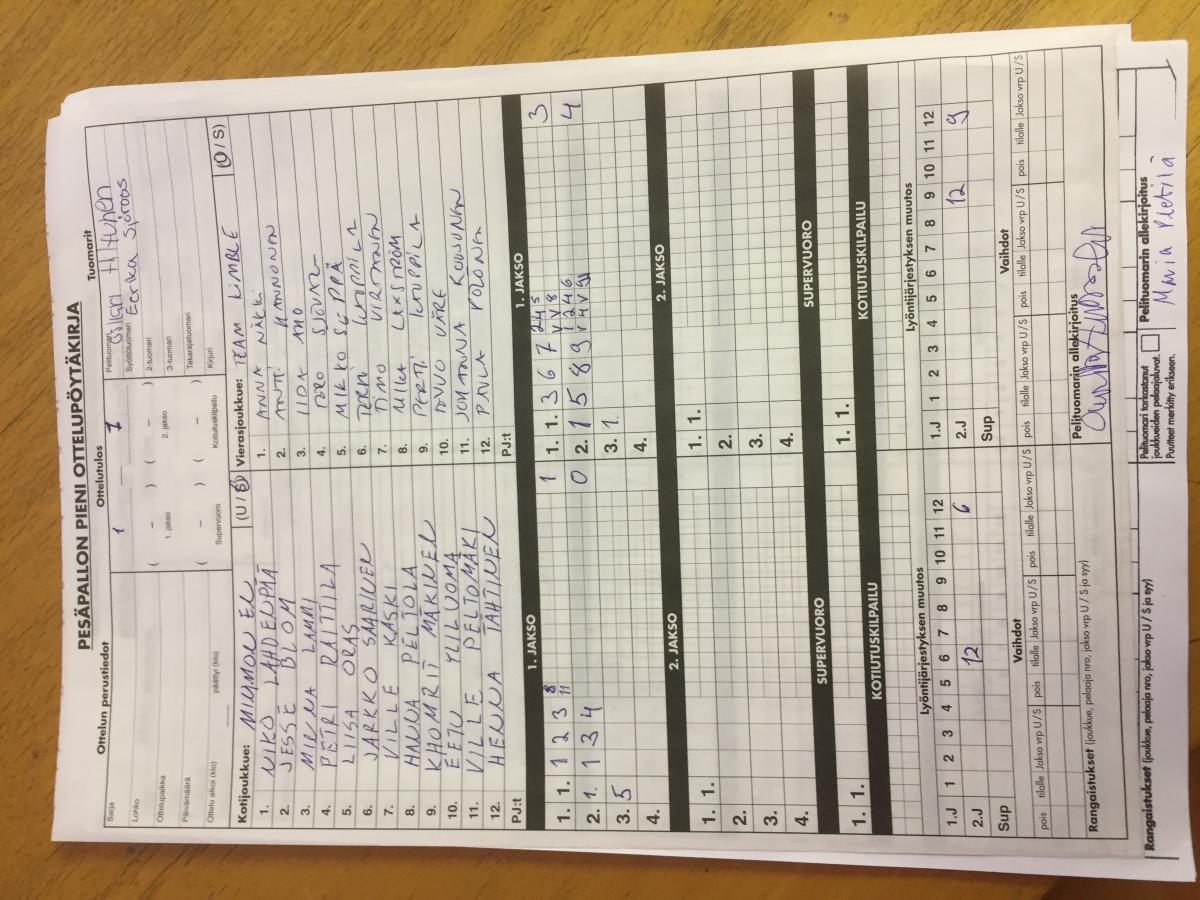 PESÄPALLON PIENI OTTELUPÖYTÄKIRJA
Ottelun perustiedot
Ottelutulos
Tuomarit
Sarja
Lohko
Ottelupaikka
Päivämäärä
Ottelu alkoi (klo) päättyi (klo)
1 — 7
( – ) ( – )
1. jakso 2. jakso
( – ) ( – )
Supervuoro Kotiutuskilpailu
Pelituomari
Syöttötuomari Eerika Sjöroos
2-tuomari
3-tuomari
Takarajatuomari
Kirjuri
Kotijoukkue: MIMMON EL (U / S)
1. NIKO LAHDENPÄÄ
2. JESSE BLOM
3. MINNA LAMMI
4. PETRI RAITTILA
5. LIISA ORAS
6. JARKKO SAARINEN
7. VILLE KASKI
8. HANNA PELTOLA
9. KHOMRIT MÄKINEN
10. EETU YLILUOMA
11. VILLE PELTOMÄKI
12. HENNA TÄHTINEN
PJ:t
Vierasjoukkue: TEAM LIMBLE (U / S)
1. ANNA NÄKKI
2. ANTTI HANNONEN
3. IIDA AHO
4. TORO
5. MIKKO SEPPÄ
6. TONI KAPPILA
7. TIMO VIRTANEN
8. MIKA LAKSTRÖM
9. PERTTI KAUPPILA
10. TOUVO VÄRE
11. JOHANNA KOUSUNEN
12. PAULA POLONEN
PJ:t
1. JAKSO
1. 1. 1 2 3 8 11 1
2. 1. 1 3 4 0
3. 5
4.
2. JAKSO
1. 1.
2.
3.
4.
SUPERVUORO
1. 1.
KOTIUTUSKILPAILU
1. JAKSO
1. 1. 3 6 7 2 4 5 V V 8 3
2. 1 5 8 9 1 2 4 6 V 4 V 4
3. 1.
4.
2. JAKSO
1. 1.
2.
3.
4.
SUPERVUORO
1. 1.
KOTIUTUSKILPAILU
Lyöntijärjestyksen muutos
1.J 1 2 3 4 5 6 7 8 9 10 11 12
2.J 12 6
Sup
Vaihdot
pois tilalle Jakso vrp U / S pois tilalle Jakso vrp U / S pois tilalle Jakso vrp U / S
Lyöntijärjestyksen muutos
1.J 1 2 3 4 5 6 7 8 9 10 11 12
2.J 12 9
Sup
Vaihdot
pois tilalle Jakso vrp U / S pois tilalle Jakso vrp U / S pois tilalle Jakso vrp U / S
Rangaistukset (joukkue, pelaaja nro, jakso vrp U / S ja syy)
Pelituomarin allekirjoitus
Rangaistukset (joukkue, pelaaja nro, jakso vrp U / S ja syy)
Pelituomari tarkastanut
joukkueiden pelaajaluvat.
Puutteet merkitty erikseen.
Pelituomarin allekirjoitus
Maria Pietilä